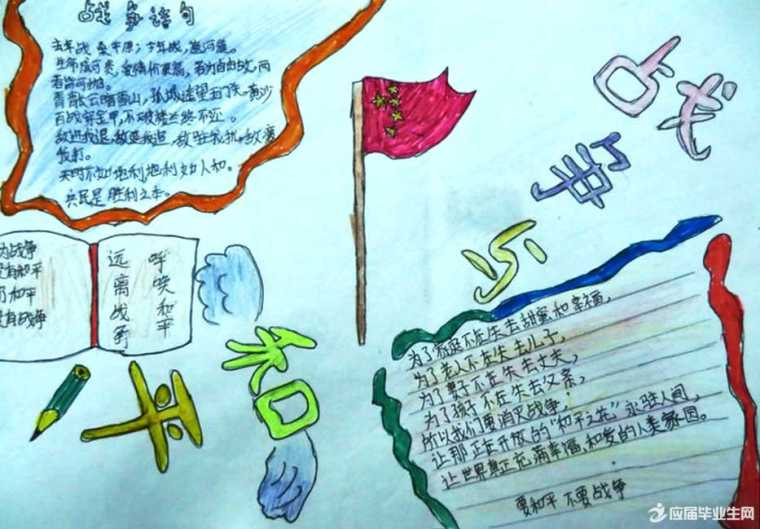 战争语句
去年战 桑干原；今年战，葱河道。
生命诚可贵，爱情价更高，若为自由故，两
者皆可抛。
青海长云暗雪山，孤城遥望玉门关。黄沙
百战穿金甲，不破楼兰终不还。
敌进我退，敌退我追，敌驻我扰，敌疲
我打。
天时不如地利，地利不如人和。
兵民是胜利之本。
战争与和平
为战争
没有和平
和平
没有战争
呼唤和平
远离战争
为了家庭不在失去甜蜜和幸福，
为了老人不在失去儿子，
为了妻子不在失去丈夫，
为了孩子不在失去父亲，
所以我们要消灭战争，
让那正在开放的“和平之花”永驻人间，
让世界真正充满幸福和爱的人类家园。
要和平 不要战争
应届毕业生网